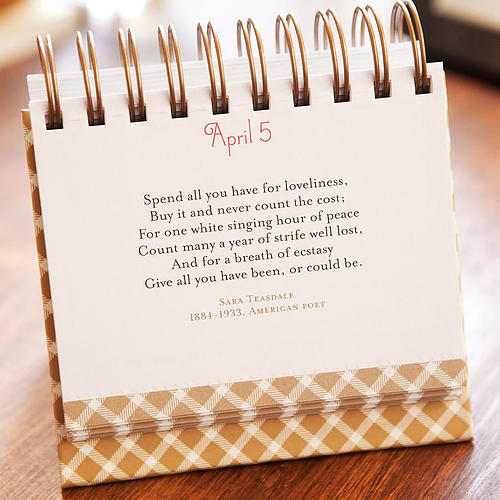 April 5
Spend all you have for loveliness,
Buy it and never count the cost;
For one white singing hour of peace
Count many a year of strife well lost,
And for a breath of ecstasy
Give all you have been, or could be.
Sara Teasdale
1884–1933, American poet